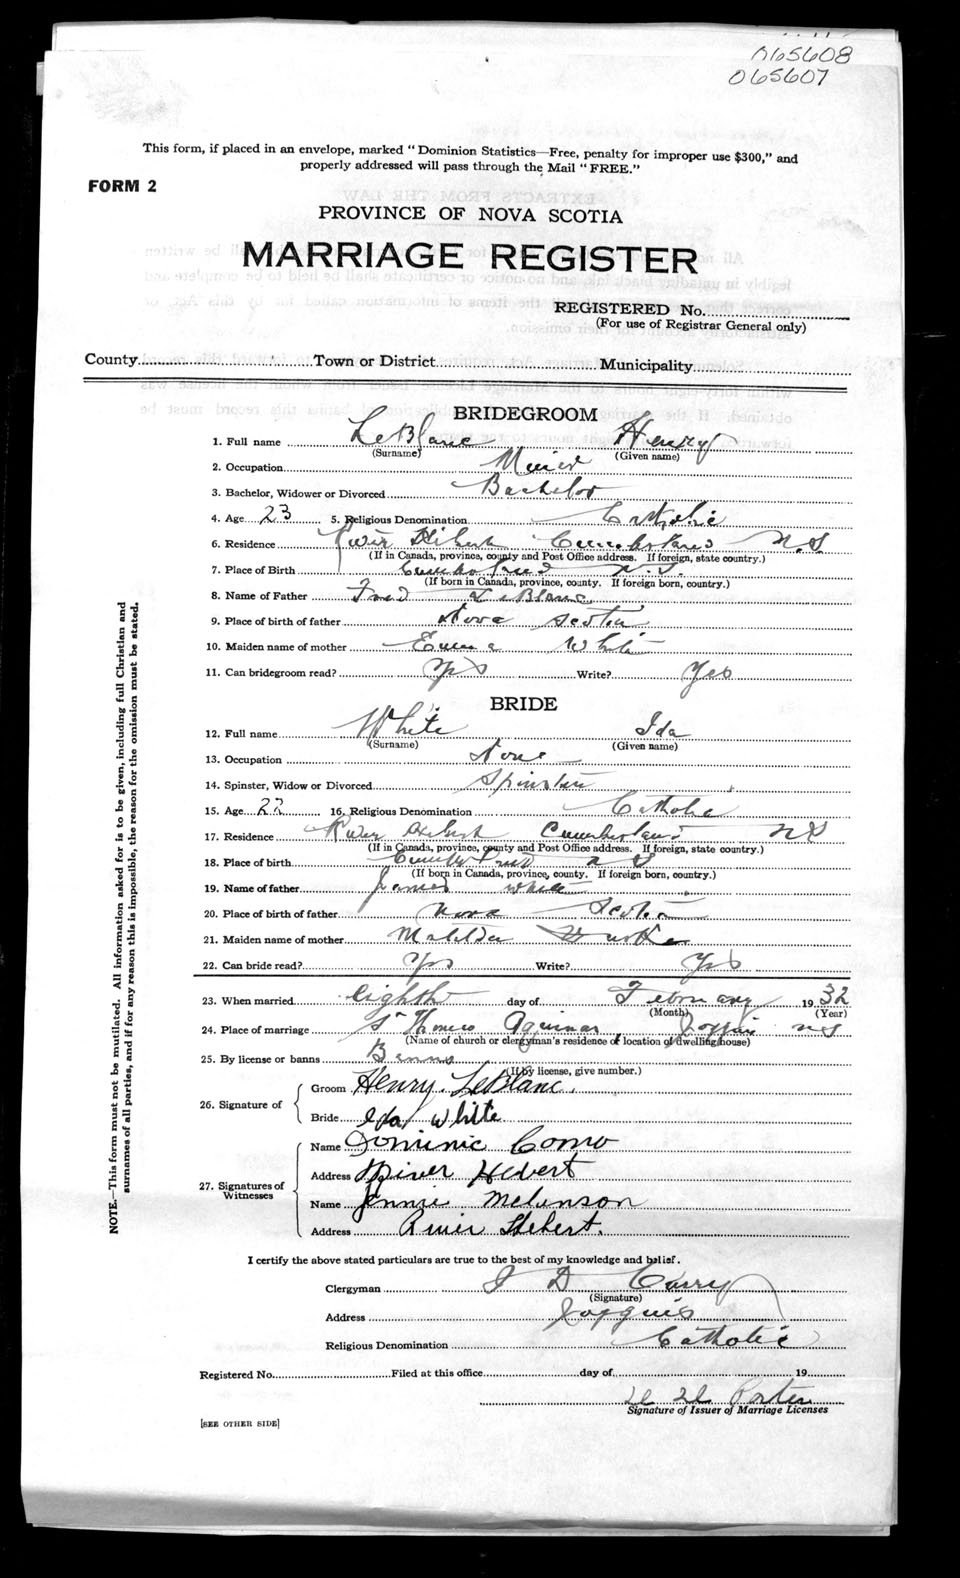 065608
065607
This form, if placed in an envelope, marked "Dominion Statistics—Free, penalty for improper use $300," and
properly addressed will pass through the Mail "FREE."
FORM 2
PROVINCE OF NOVA SCOTIA
MARRIAGE REGISTER
REGISTERED No.
(For use of Registrar General only)
County Town or District Municipality
BRIDEGROOM
1. Full name LeBlanc Henry
(Surname) (Given name)
2. Occupation Miner
3. Bachelor, Widower or Divorced Bachelor
4. Age 23 5. Religious Denomination Catholic
6. Residence River Hebert Cumberland N.S
(If in Canada, province, county and Post Office address. If foreign, state country.)
7. Place of Birth Cumberland N.S.
(If born in Canada, province, county. If foreign born, country.)
8. Name of Father Fred LeBlanc
9. Place of birth of father Nova Scotia
10. Maiden name of mother Emma White
11. Can bridegroom read? Yes Write? Yes
BRIDE
12. Full name White Ida
(Surname) (Given name)
13. Occupation None
14. Spinster, Widow or Divorced Spinster
15. Age 22 16. Religious Denomination Catholic
17. Residence River Hebert Cumberland N S
(If in Canada, province, county and Post Office address. If foreign, state country.)
18. Place of birth Cumberland N S
(If born in Canada, province, county. If foreign born, country.)
19. Name of father James White
20. Place of birth of father Nova Scotia
21. Maiden name of mother Matilda
22. Can bride read? Yes Write? Yes
23. When married eighth day of February 19 32
(Month) (Year)
24. Place of marriage St Thomas Aquinas, Joggins N S
(Name of church or clergyman's residence of location of dwelling house)
25. By license or banns Banns
(If by license, give number.)
26. Signature of Groom Henry LeBlanc.
Bride Ida White
27. Signatures of Witnesses Name Dominic Como
Address River Hebert
Name Jennie Melanson
Address River Hebert.
I certify the above stated particulars are true to the best of my knowledge and belief.
Clergyman J D Curry
(Signature)
Address Joggins
Religious Denomination Catholic
Registered No. Filed at this office day of 19
Porter
Signature of Issuer of Marriage Licenses
[SEE OTHER SIDE]
NOTE.—This form must not be mutilated. All information asked for is to be given, including full Christian and
surnames of all parties, and if for any reason this is impossible, the reason for the omission must be stated.